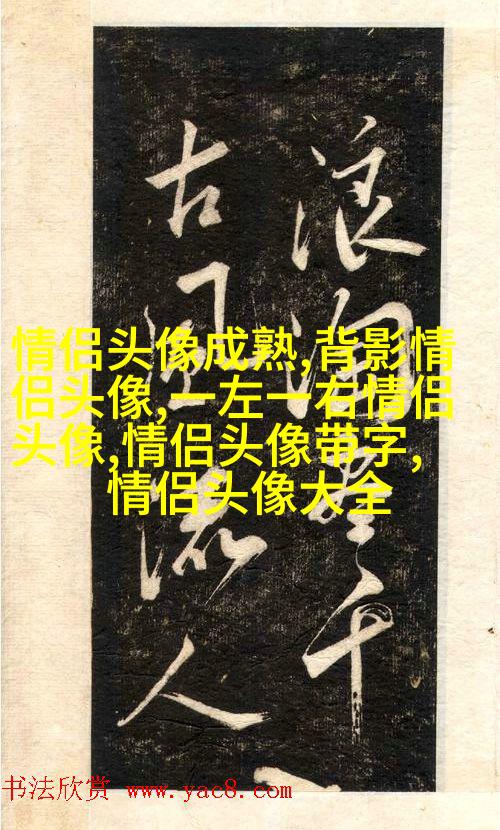 浪淘盡千
古風流人
情侣头像成熟,背影情
侣头像,一左一右情侣
头像,情侣头像带字,
情侣头像大全
书法欣赏 www.yac8.com